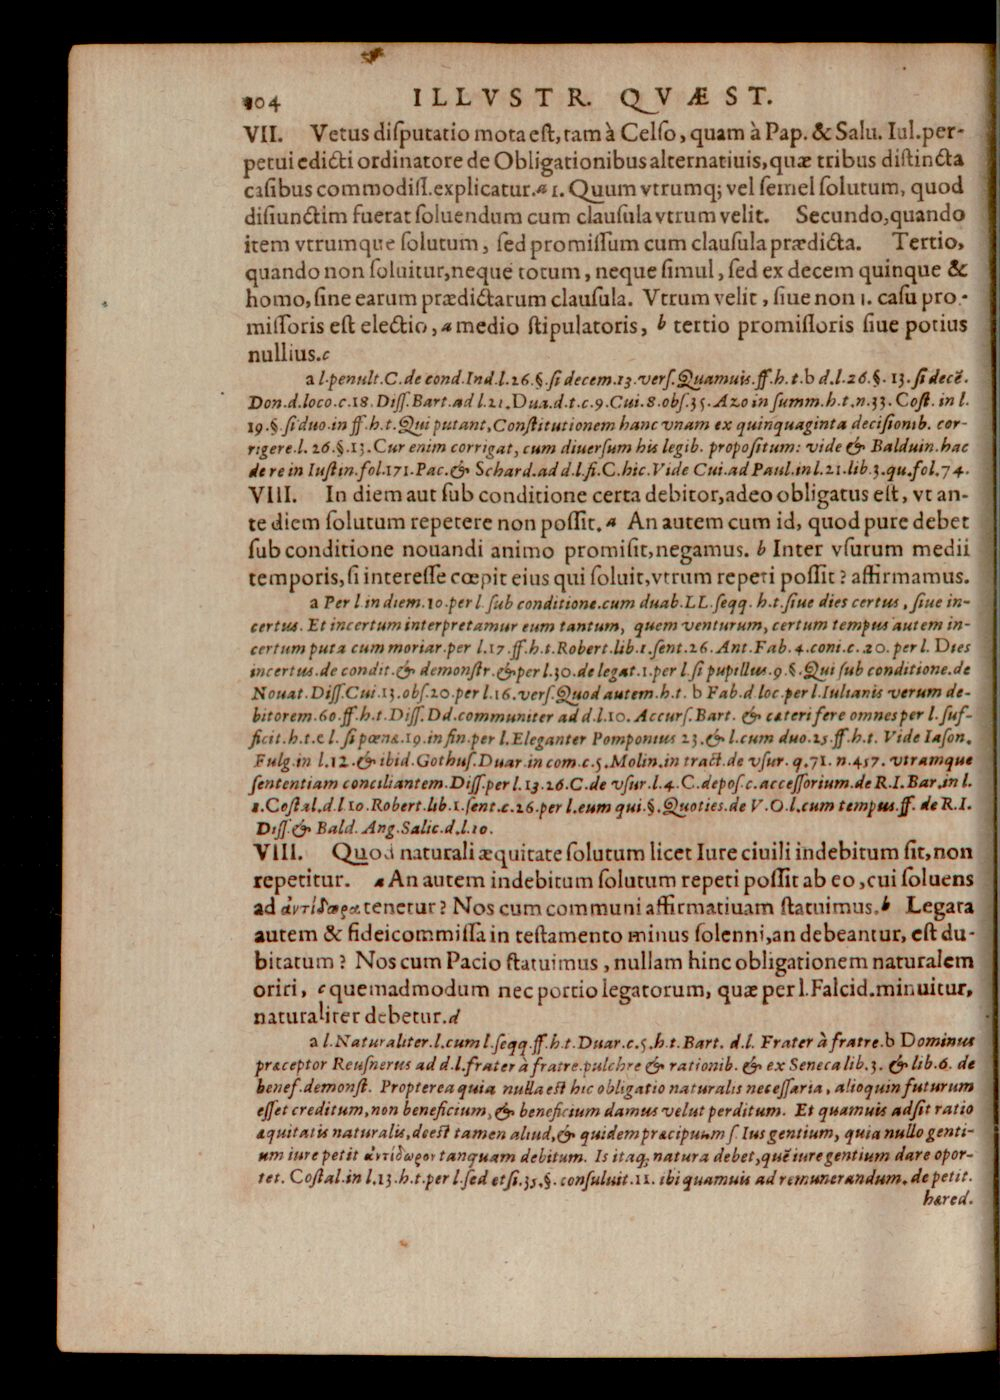 104 ILLVSTR. QVÆST.
VII. Vetus disputatio mota est, tam à Celso, quam à Pap. & Salu. Iul. per-
petui edicti ordinatore de Obligationibus alternatiuis, quæ tribus distincta
casibus commodiss. explicatur. a 1. Quum vtrumq; vel semel solutum, quod
disiunctim fuerat soluendum cum clausula vtrum velit. Secundo, quando
item vtrumque solutum, sed promissum cum clausula prædicta. Tertio,
quando non soluitur, neque totum, neque simul, sed ex decem quinque &
homo, sine earum prædictarum clausula. Vtrum velit, siue non 1. casu pro-
missoris est electio, a medio stipulatoris, b tertio promissoris siue potius
nullius. c
a l. penult. C. de cond. Ind. l. 26. §. si decem. 13. vers. Quamuis. ff. h. t. b d. l. 26. §. 13. si decẽ.
Don. d. loco. c. 18. Diss. Bart. ad l. 21. Dua. d. t. c. 9. Cui. 8. obs. 35. Azo in summ. h. t. n. 33. Cost. in l.
19. §. si duo. in ff. h. t. Qui putant, Constitutionem hanc vnam ex quinquaginta decisionib. cor-
rigere. l. 26. §. 13. Cur enim corrigat, cum diuersum his legib. propositum: vide & Balduin. hac
de re in Iustin. fol. 171. Pac. & Schard. ad d. l. fi. C. hic. Vide Cui. ad Paul. in l. 21. lib. 3. qu. fol. 74.
VIII. In diem aut sub conditione certa debitor, adeo obligatus est, vt an-
te diem solutum repetere non possit. a An autem cum id, quod pure debet
sub conditione nouandi animo promisit, negamus. b Inter vsurum medii
temporis, si interesse cœpit eius qui soluit, vtrum repeti possit? affirmamus.
a Per l. in diem. 10. per l. sub conditione. cum duab. LL. seqq. h. t. siue dies certus, siue in-
certus. Et incertum interpretamur eum tantum, quem venturum, certum tempus autem in-
certum puta cum moriar. per l. 17. ff. h. t. Robert. lib. 1. sent. 26. Ant. Fab. 4. coni. c. 20. per l. Dies
incertus. de condit. & demonstr. & per l. 30. de legat. 1. per l. si pupillus. 9. §. Qui sub conditione. de
Nouat. Diss. Cui. 13. obs. 20. per l. 16. vers. Quod autem. h. t. b Fab. d loc. per l. Iulianis verum de-
bitorem. 60. ff. h. t. Diss. Dd. communiter ad d. l. 10. Accurs. Bart. & cæteri fere omnes per l. suf-
ficit. h. t. c l. si pœnæ. 19. in fin. per l. Eleganter Pomponius 23. & l. cum duo. 25. ff. h. t. Vide Iason.
Fulg. in l. 12. & ibid. Gothus. Duar. in com. c. 5. Molin. in tract. de vsur. q. 71. n. 457. vtramque
sententiam conciliantem. Diss. per l. 13. 26. C. de vsur. l. 4. C. depos. c. accessorium. de R. I. Bar. in l.
1. Costal. d. l 10. Robert. lib. 1. sent. c. 26. per l. eum qui. §. Quoties. de V. O. l. cum tempus. ff. de R. I.
Diss. & Bald. Ang. Salic. d. l. 10.
VIII. Quod naturali æquitate solutum licet Iure ciuili indebitum sit, non
repetitur. a An autem indebitum solutum repeti possit ab eo, cui soluens
ad ἀντίδωρα tenetur? Nos cum communi affirmatiuam statuimus. b Legata
autem & fideicommissa in testamento minus solenni, an debeantur, est du-
bitatum? Nos cum Pacio statuimus, nullam hinc obligationem naturalem
oriri, c quemadmodum nec portio legatorum, quæ per l. Falcid. minuitur,
naturaliter debetur. d
a l. Naturaliter. l. cum l. seqq. ff. h. t. Duar. c. 5. h. t. Bart. d. l. Frater à fratre. b Dominus
præceptor Reusnerus ad d. l. frater à fratre. pulchre & rationib. & ex Seneca lib. 3. & lib. 6. de
benef. demonst. Propterea quia nulla est hic obligatio naturalis necessaria, alioquin futurum
esset creditum, non beneficium, & beneficium damus velut perditum. Et quamuis adsit ratio
æquitatis naturalis, deest tamen aliud, & quidem præcipuum s. Ius gentium, quia nullo genti-
um iure petit ἀντίδωρον tanquam debitum. Is itaq; natura debet, quẽ iure gentium dare opor-
tet. Costal. in l. 13. h. t. per l. sed etsi. 35. §. consuluit. 11. ibi quamuis ad remunerandum. de petit.
hæred.